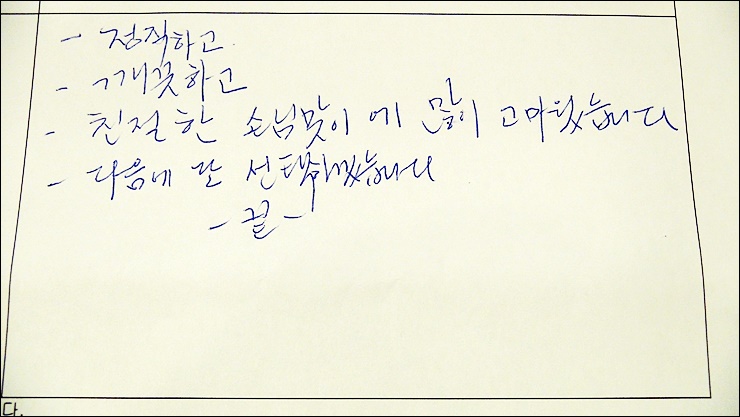 - 정직하고
- 깨끗하고
- 친절한 손님맞이에 많이 고마웠습니다
- 다음에 또 선택하겠습니다
- 끝 -
다.